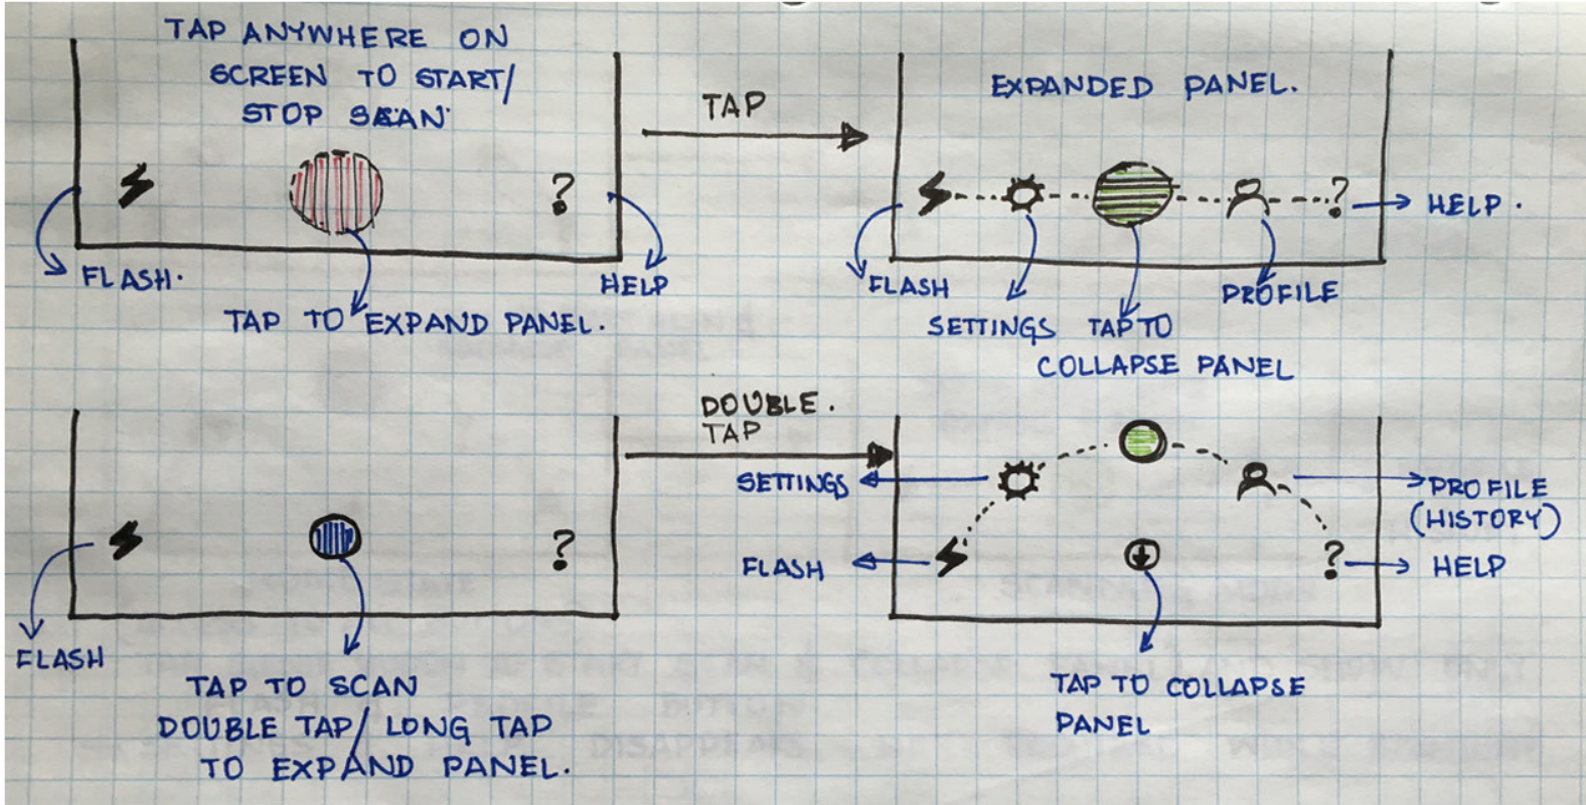 TAP ANYWHERE ON
SCREEN TO START/
STOP SCAN
?
FLASH.
TAP TO EXPAND PANEL.
HELP
TAP
EXPANDED PANEL.
?
HELP.
FLASH
SETTINGS
TAP TO
COLLAPSE PANEL
PROFILE
?
FLASH
TAP TO SCAN
DOUBLE TAP/LONG TAP
TO EXPAND PANEL.
DOUBLE.
TAP
SETTINGS
FLASH
?
PROFILE
(HISTORY)
HELP
TAP TO COLLAPSE
PANEL